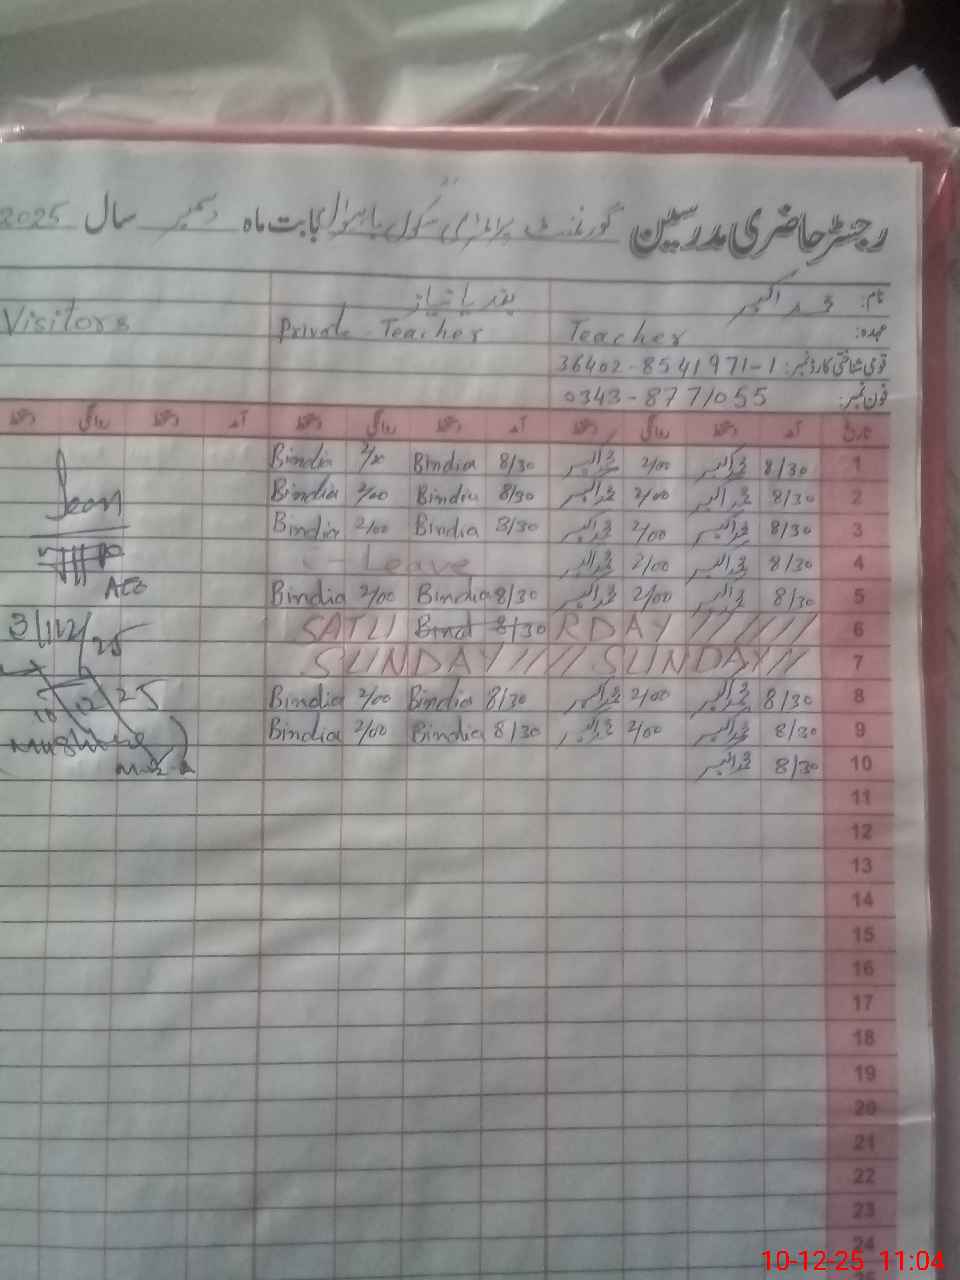 رجسٹر حاضری مدرسین گورنمنٹ پرائمری سکول بابت ماہ دسمبر سال 2025
نام: محمد اکبر
عہدہ: Teacher Private Teacher Visitors
قومی شناختی کارڈ نمبر: 36402-8541971-1
فون نمبر: 0343-8771055
تاریخ آمد دستخط روانگی دستخط آمد دستخط روانگی دستخط آمد دستخط روانگی دستخط
1 8/30 محمد اکبر 2/00 محمد اکبر 8/30 Bindia 2/00 Bindia
2 8/30 محمد اکبر 2/00 محمد اکبر 8/30 Bindia 2/00 Bindia
3 8/30 محمد اکبر 2/00 محمد اکبر 8/30 Bindia 2/00 Bindia
4 8/30 محمد اکبر 2/00 محمد اکبر Leave
5 8/30 محمد اکبر 2/00 محمد اکبر 8/30 Bindia 2/00 Bindia
6 SATU Bind 8/30 RDAY
7 SUNDAY SUNDAY
8 8/30 محمد اکبر 2/00 محمد اکبر 8/30 Bindia 2/00 Bindia
9 8/30 محمد اکبر 2/00 محمد اکبر 8/30 Bindia 2/00 Bindia
10 8/30 محمد اکبر
Seen
AEO
3/12/25
10 12 25
11
12
13
14
15
16
17
18
19
20
21
22
23
24
10-12-25 11:04